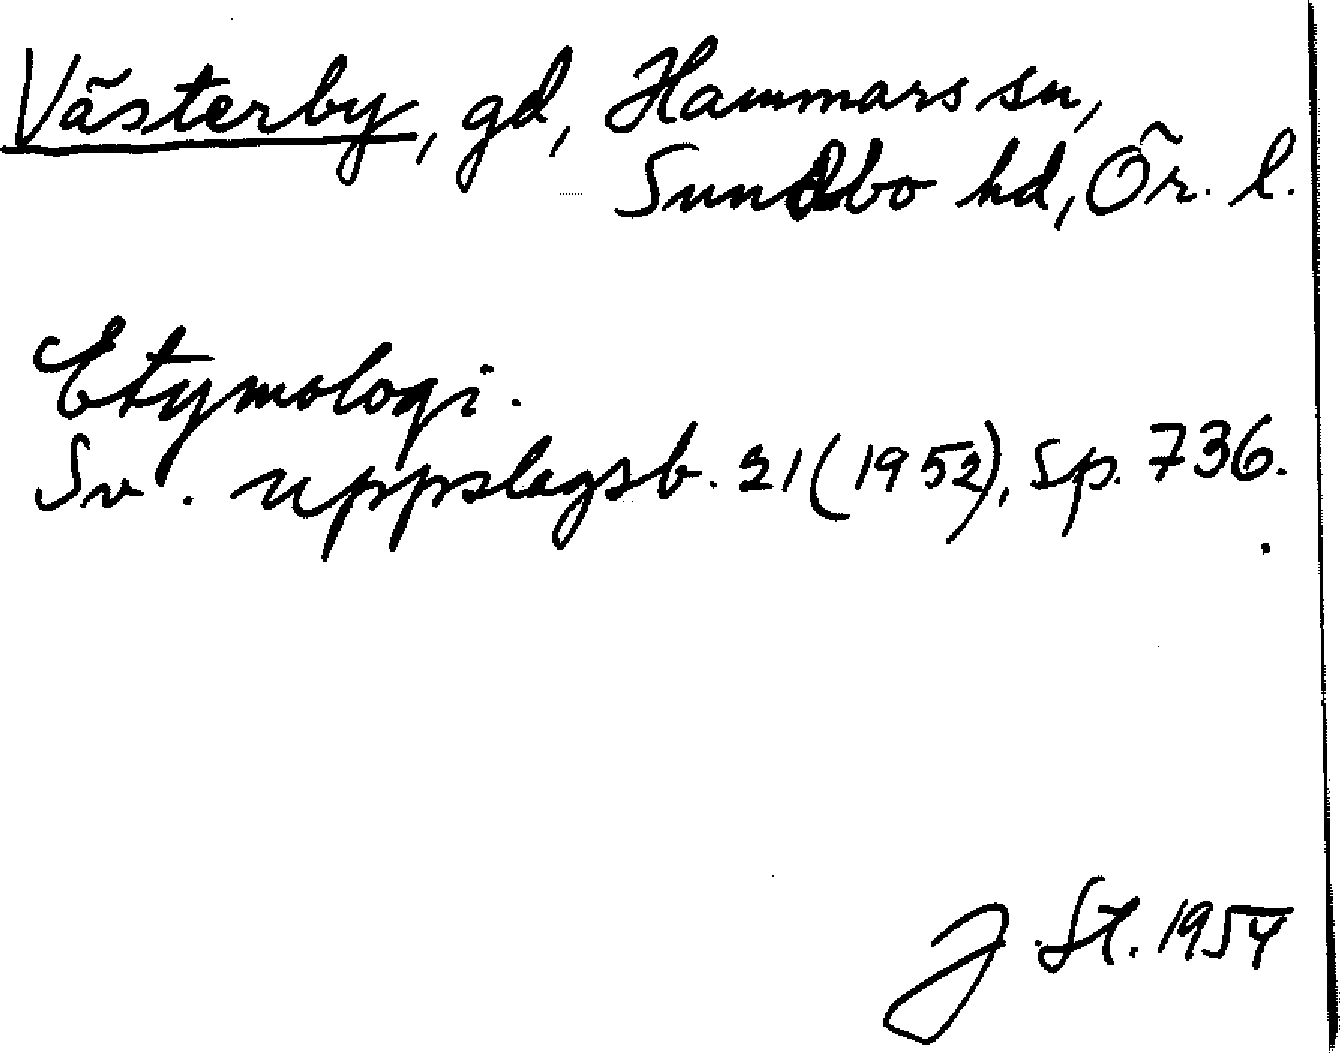 Västerby, gd, Hammars sn,
Sundbo hd, Ör. l.
Etymologi.
Sv. uppslagsb. 31 (1952), sp. 736.
J. St. 1954